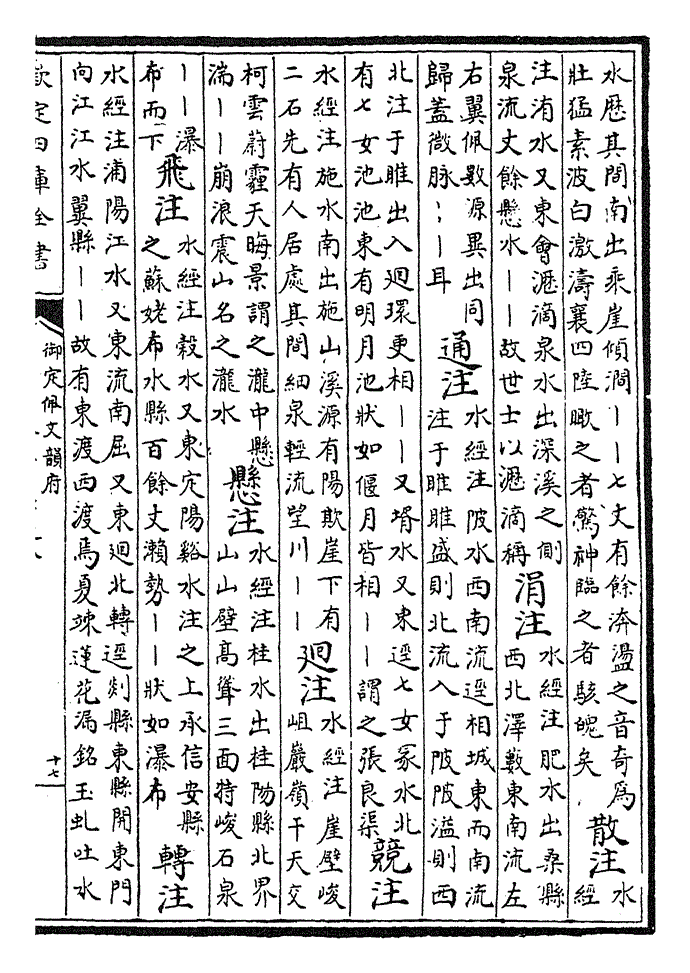 水歴其間南出乘崖傾澗丨丨七丈有餘渀盪之音奇為
壯猛素波白激濤襄四陸瞰之者驚神臨之者駭魄矣
散注
水
經
注洧水又東會瀝滴泉水出深溪之側
泉流丈餘懸水丨丨故世士以瀝滴稱
涓注
水經注肥水出桑縣
西北澤藪東南流左
右翼佩數源異出同
歸蓋微脉丨丨耳
通注
水經注陂水西南流逕相城東而南流
注于睢睢盛則北流入于陂陂溢則西
北注于睢出入廻環更相丨丨又壻水又東逕七女冢水北
有七女池池東有明月池狀如偃月皆相丨丨謂之張良渠
競注
水經注施水南出施山溪源有陽欺崖下有
二石先有人居處其間細泉輕流望川丨丨
廻注
水經注崖壁峻
岨巖嶺干天交
柯雲蔚霾天晦景謂之瀧中懸
湍丨丨崩浪震山名之瀧水
懸注
水經注桂水出桂陽縣北界
山山壁高聳三面特峻石泉
丨丨瀑
布而下
飛注
水經注穀水又東定陽谿水注之上承信安縣
之蘇姥布水縣百餘丈瀨勢丨丨狀如瀑布
轉注
水經注浦陽江水又東流南屈又東廻北轉逕剡縣東縣開東門
向江江水翼縣丨丨故有東渡西渡焉夏竦蓮花漏銘玉虬吐水
欽定四庫全書
御定佩文韻府
十七